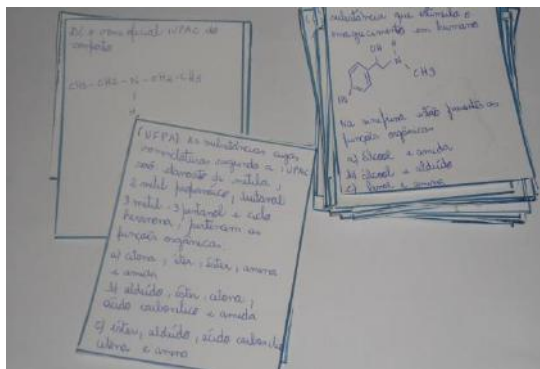 Dê o nome oficial IUPAC do
composto
CH3-CH2-N-CH2-CH3
H
(UFPA) As substâncias cujas
nomenclaturas segundo a IUPAC
são etanoato de metila,
2 metil propanoico, butanal
3 metil-3 pentanol e ciclo
hexanona, pertencem as
funções orgânicas:
a) cetona, éter, éster, amina
e amida
b) aldeído, éster, cetona,
ácido carboxílico e amida
c) éster, aldeído, ácido carboxílico
cetona e amina
substância que estimula o
emagrecimento em humano
OH
H
N
CH3
HO
Na sinefrina estão presentes as
funções orgânicas:
a) álcool e amida
b) álcool e aldeído
c) fenol e amina